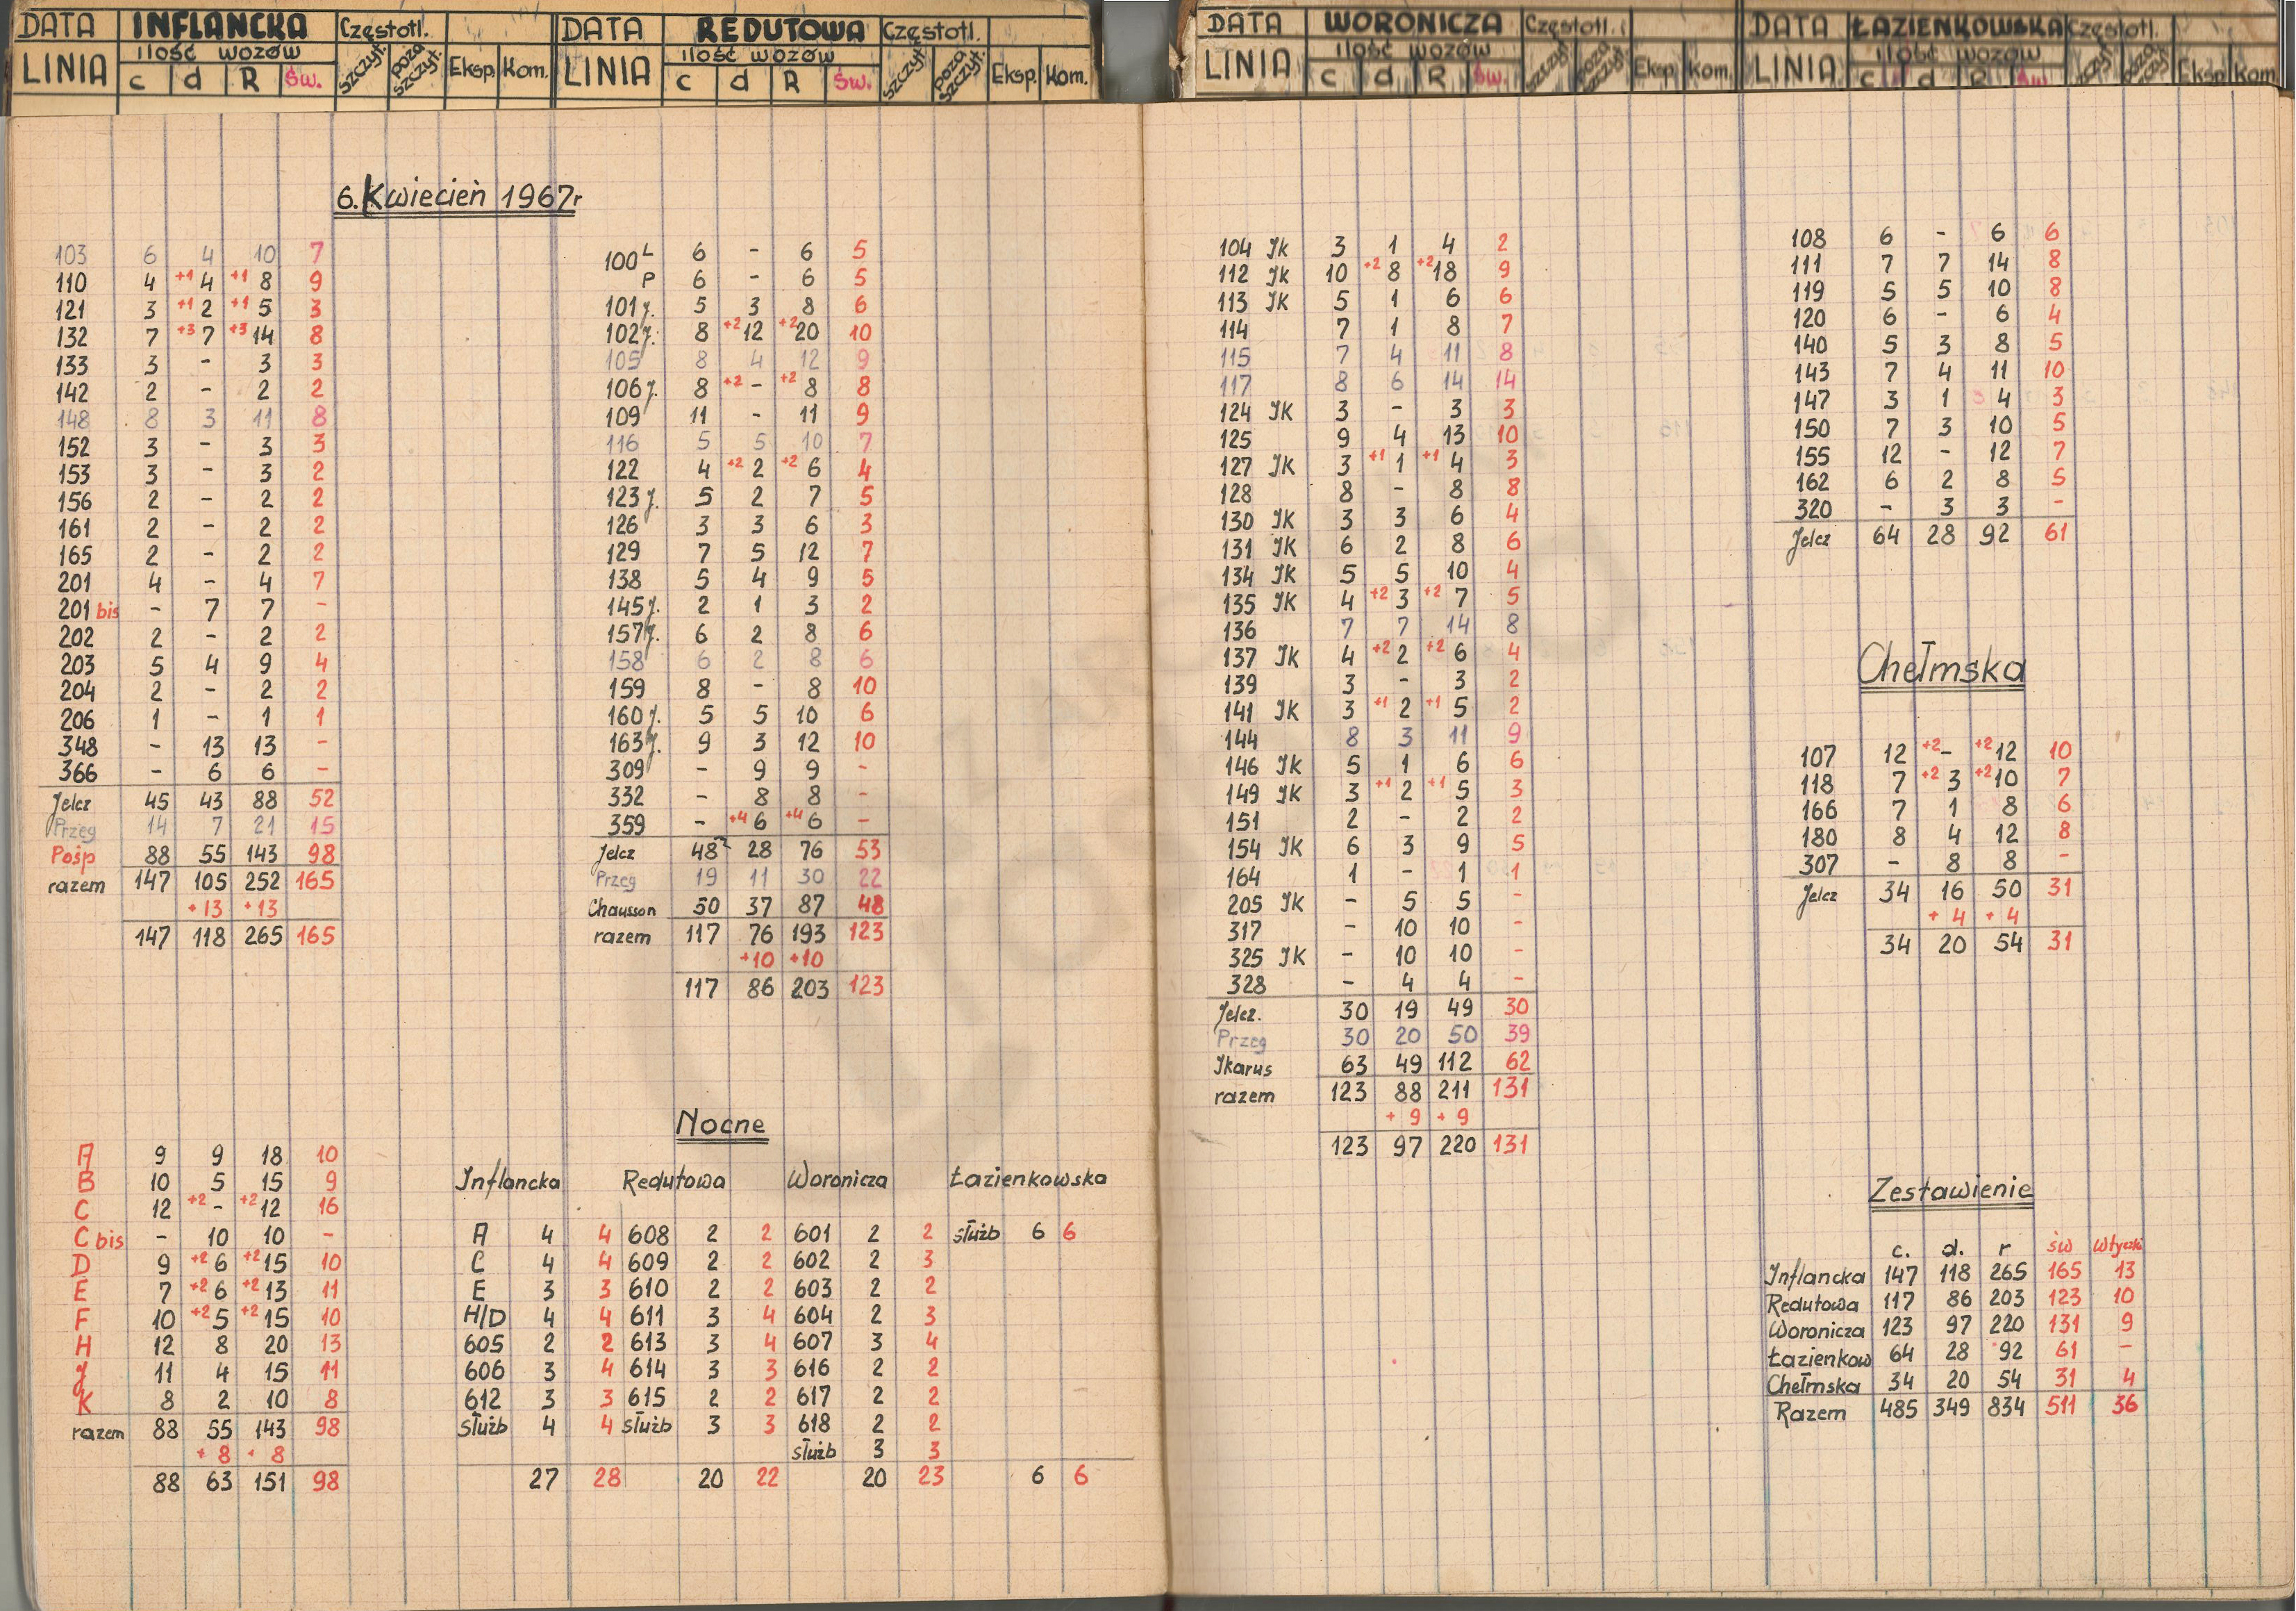 DATA INFLANCKA Częstotl.
LINIA ilość wozów c d R Św. szczyt. poza szczyt. Eksp. Kom.
DATA REDUTOWA Częstotl.
LINIA ilość wozów c d R Św. szczyt. poza szczyt. Eksp. Kom.
DATA WORONICZA Częstotl.
LINIA ilość wozów c d R Św. szczyt. poza szczyt. Eksp. Kom.
DATA ŁAZIENKOWSKA Częstotl.
LINIA ilość wozów c d R Św. szczyt. poza szczyt. Eksp. Kom.
6. Kwiecień 1967r
103 6 4 10 7
110 4 +1 4 +1 8 9
121 3 +1 2 +1 5 3
132 7 +3 7 +3 14 8
133 3 - 3 3
142 2 - 2 2
148 8 3 11 8
152 3 - 3 3
153 3 - 3 2
156 2 - 2 2
161 2 - 2 2
165 2 - 2 2
201 4 - 4 7
201 bis - 7 7 -
202 2 - 2 2
203 5 4 9 4
204 2 - 2 2
206 1 - 1 1
348 - 13 13 -
366 - 6 6 -
Jelcz 45 43 88 52
Przeg 14 7 21 15
Pośp 88 55 143 98
razem 147 105 252 165
+13 +13
147 118 265 165
A 9 9 18 10
B 10 5 15 9
C 12 +2 - +2 12 16
C bis - 10 10 -
D 9 +2 6 +2 15 10
E 7 +2 6 +2 13 11
F 10 +2 5 +2 15 10
H 12 8 20 13
J 11 4 15 11
K 8 2 10 8
razem 88 55 143 98
+8 +8
88 63 151 98
100 L 6 - 6 5
P 6 - 6 5
101 j. 5 3 8 6
102 j. 8 +2 12 +2 20 10
105 8 4 12 9
106 j. 8 +2 - +2 8 8
109 11 - 11 9
116 5 5 10 7
122 4 +2 2 +2 6 4
123 j. 5 2 7 5
126 3 3 6 3
129 7 5 12 7
138 5 4 9 5
145 j. 2 1 3 2
157 j. 6 2 8 6
158 6 2 8 6
159 8 - 8 10
160 j. 5 5 10 6
163 j. 9 3 12 10
309 - 9 9 -
332 - 8 8 -
359 - +4 6 +4 6 -
Jelcz 48 28 76 53
Przeg 19 11 30 22
Chausson 50 37 87 48
razem 117 76 193 123
+10 +10
117 86 203 123
Nocne
Inflancka Redutowa Woronicza Łazienkowska
A 4 4 608 2 2 601 2 2 służb 6 6
C 4 4 609 2 2 602 2 3
E 3 3 610 2 2 603 2 2
H/D 4 4 611 3 4 604 2 3
605 2 2 613 3 4 607 3 4
606 3 4 614 3 3 616 2 2
612 3 3 615 2 2 617 2 2
służb 4 4 służb 3 3 618 2 2
służb 3 3
27 28 20 22 20 23 6 6
104 Jk 3 1 4 2
112 Jk 10 +2 8 +2 18 9
113 JK 5 1 6 6
114 7 1 8 7
115 7 4 11 8
117 8 6 14 14
124 JK 3 - 3 3
125 9 4 13 10
127 JK 3 +1 1 +1 4 3
128 8 - 8 8
130 JK 3 3 6 4
131 JK 6 2 8 6
134 JK 5 5 10 4
135 JK 4 +2 3 +2 7 5
136 7 7 14 8
137 JK 4 +2 2 +2 6 4
139 3 - 3 2
141 JK 3 +1 2 +1 5 2
144 8 3 11 9
146 JK 5 1 6 6
149 JK 3 +1 2 +1 5 3
151 2 - 2 2
154 JK 6 3 9 5
164 1 - 1 1
205 JK - 5 5 -
317 - 10 10 -
325 JK - 10 10 -
328 - 4 4 -
Jelcz. 30 19 49 30
Przeg 30 20 50 39
Jkarus 63 49 112 62
razem 123 88 211 131
+9 +9
123 97 220 131
108 6 - 6 6
111 7 7 14 8
119 5 5 10 8
120 6 - 6 4
140 5 3 8 5
143 7 4 11 10
147 3 1 4 3
150 7 3 10 5
155 12 - 12 7
162 6 2 8 5
320 - 3 3 -
Jelcz 64 28 92 61
Chełmska
107 12 +2 - +2 12 10
118 7 +2 3 +2 10 7
166 7 1 8 6
180 8 4 12 8
307 - 8 8 -
Jelcz 34 16 50 31
+4 +4
34 20 54 31
Zestawienie
c. d. r św wtyczki
Inflancka 147 118 265 165 13
Redutowa 117 86 203 123 10
Woronicza 123 97 220 131 9
Łazienkow 64 28 92 61 -
Chełmska 34 20 54 31 4
Razem 485 349 834 511 36